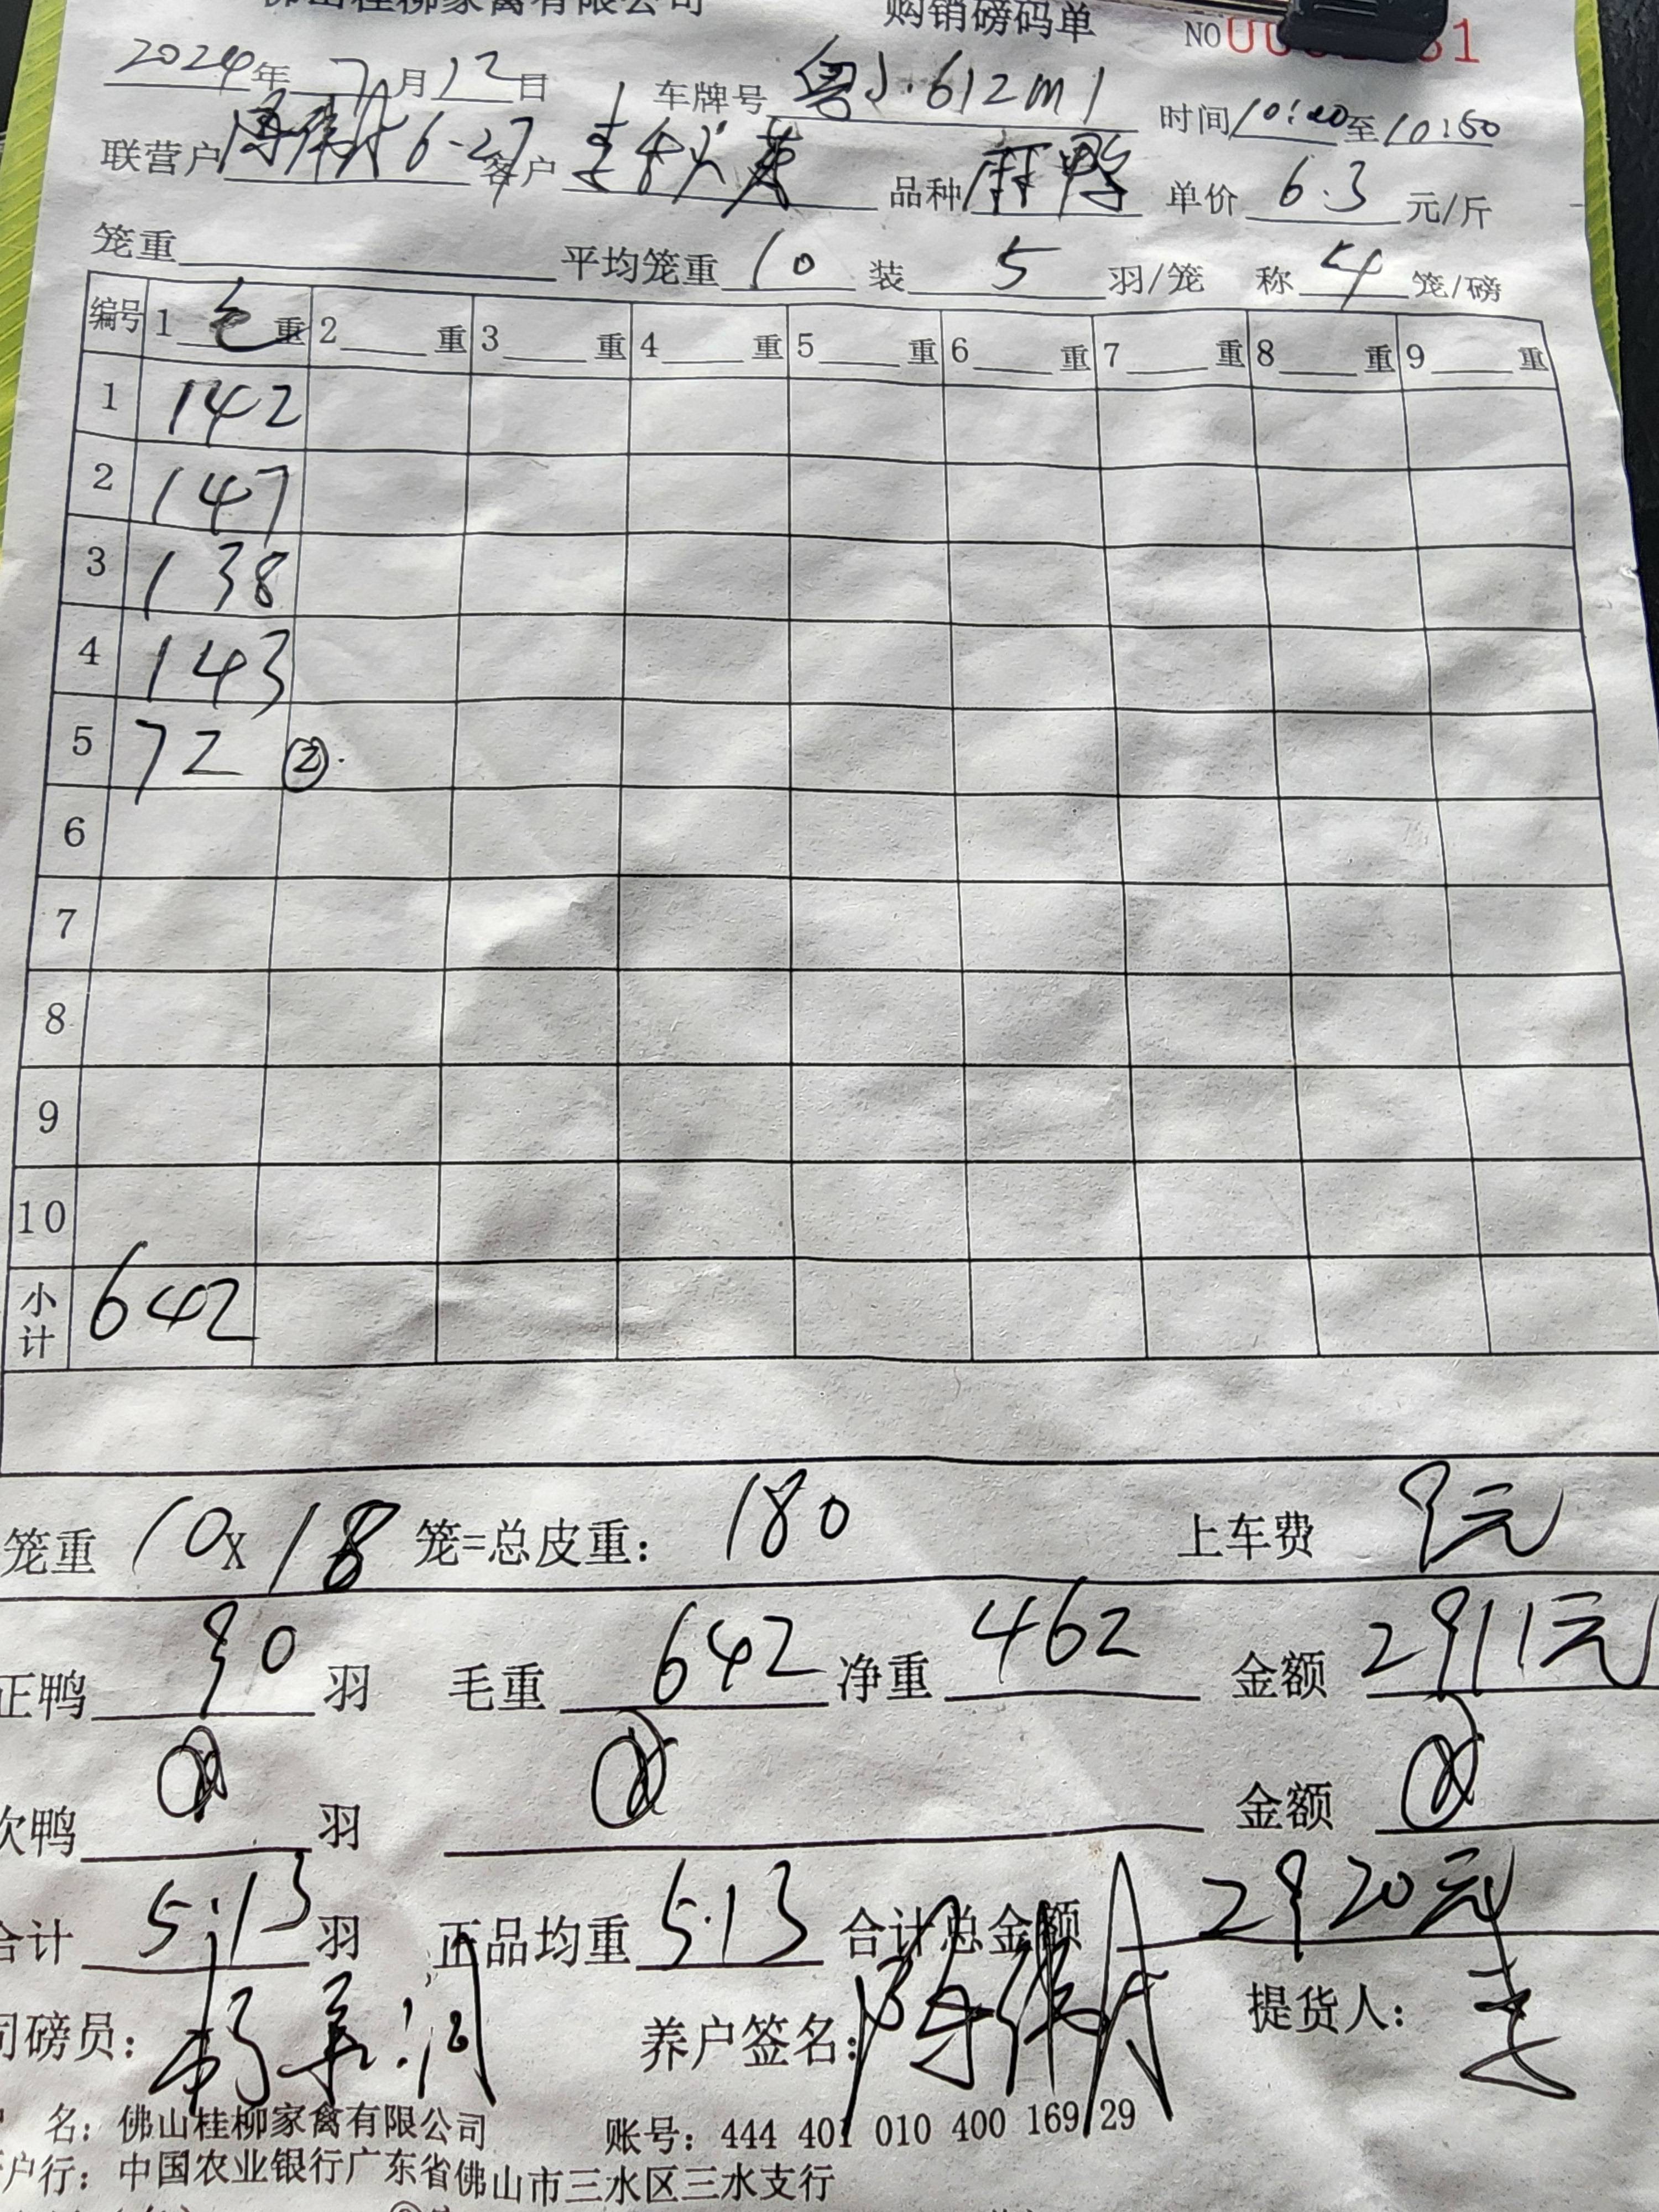 佛山桂柳家禽有限公司 购销磅码单 NO
2024年 7月12日 车牌号 粤J·612m1 时间10:20至10:50
联营户 6-27 客户 品种 麻鸭 单价 6.3 元/斤
笼重 平均笼重 10 装 5 羽/笼 称 4 笼/磅
编号 1 毛 重 2 重 3 重 4 重 5 重 6 重 7 重 8 重 9 重
1 142
2 147
3 138
4 143
5 72 ②.
6
7
8
9
10
小计 642
笼重 10 X 18 笼=总皮重: 180 上车费 9元
正鸭 90 羽 毛重 642 净重 462 金额 2911元
次鸭 羽 金额
合计 5.13 羽 正品均重 5.13 合计总金额 2920元
司磅员: 养户签名: 提货人:
名: 佛山桂柳家禽有限公司 账号: 444 401 010 400 169 29
户行: 中国农业银行广东省佛山市三水区三水支行